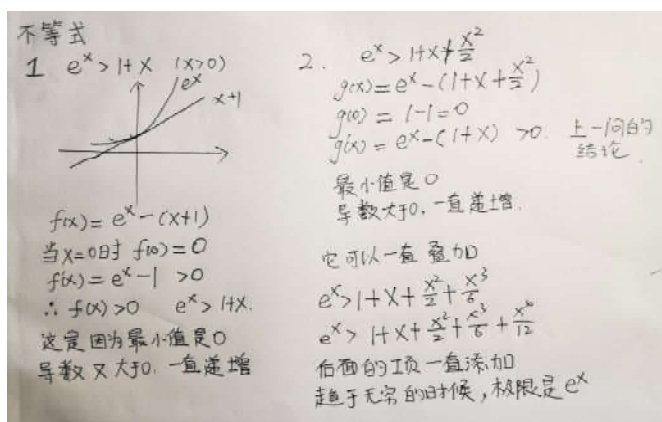 不等式
1 eˣ > 1+x (x>0)
eˣ
x+1
f(x) = eˣ-(x+1)
当x=0时 f(0)=0
f'(x) = eˣ-1 >0
∴ f(x)>0 eˣ > 1+x.
这是因为最小值是0
导数又大于0, 一直递增
2. eˣ > 1+x+x²/2
g(x) = eˣ-(1+x+x²/2)
g(0) = 1-1=0
g'(x) = eˣ-(1+x) >0. 上一问的
结论.
最小值是0
导数大于0, 一直递增.
它可以一直叠加
eˣ>1+x+x²/2+x³/6
eˣ> 1+x+x²/2+x³/6+x⁴/12
后面的项一直添加
趋于无穷的时候, 极限是eˣ